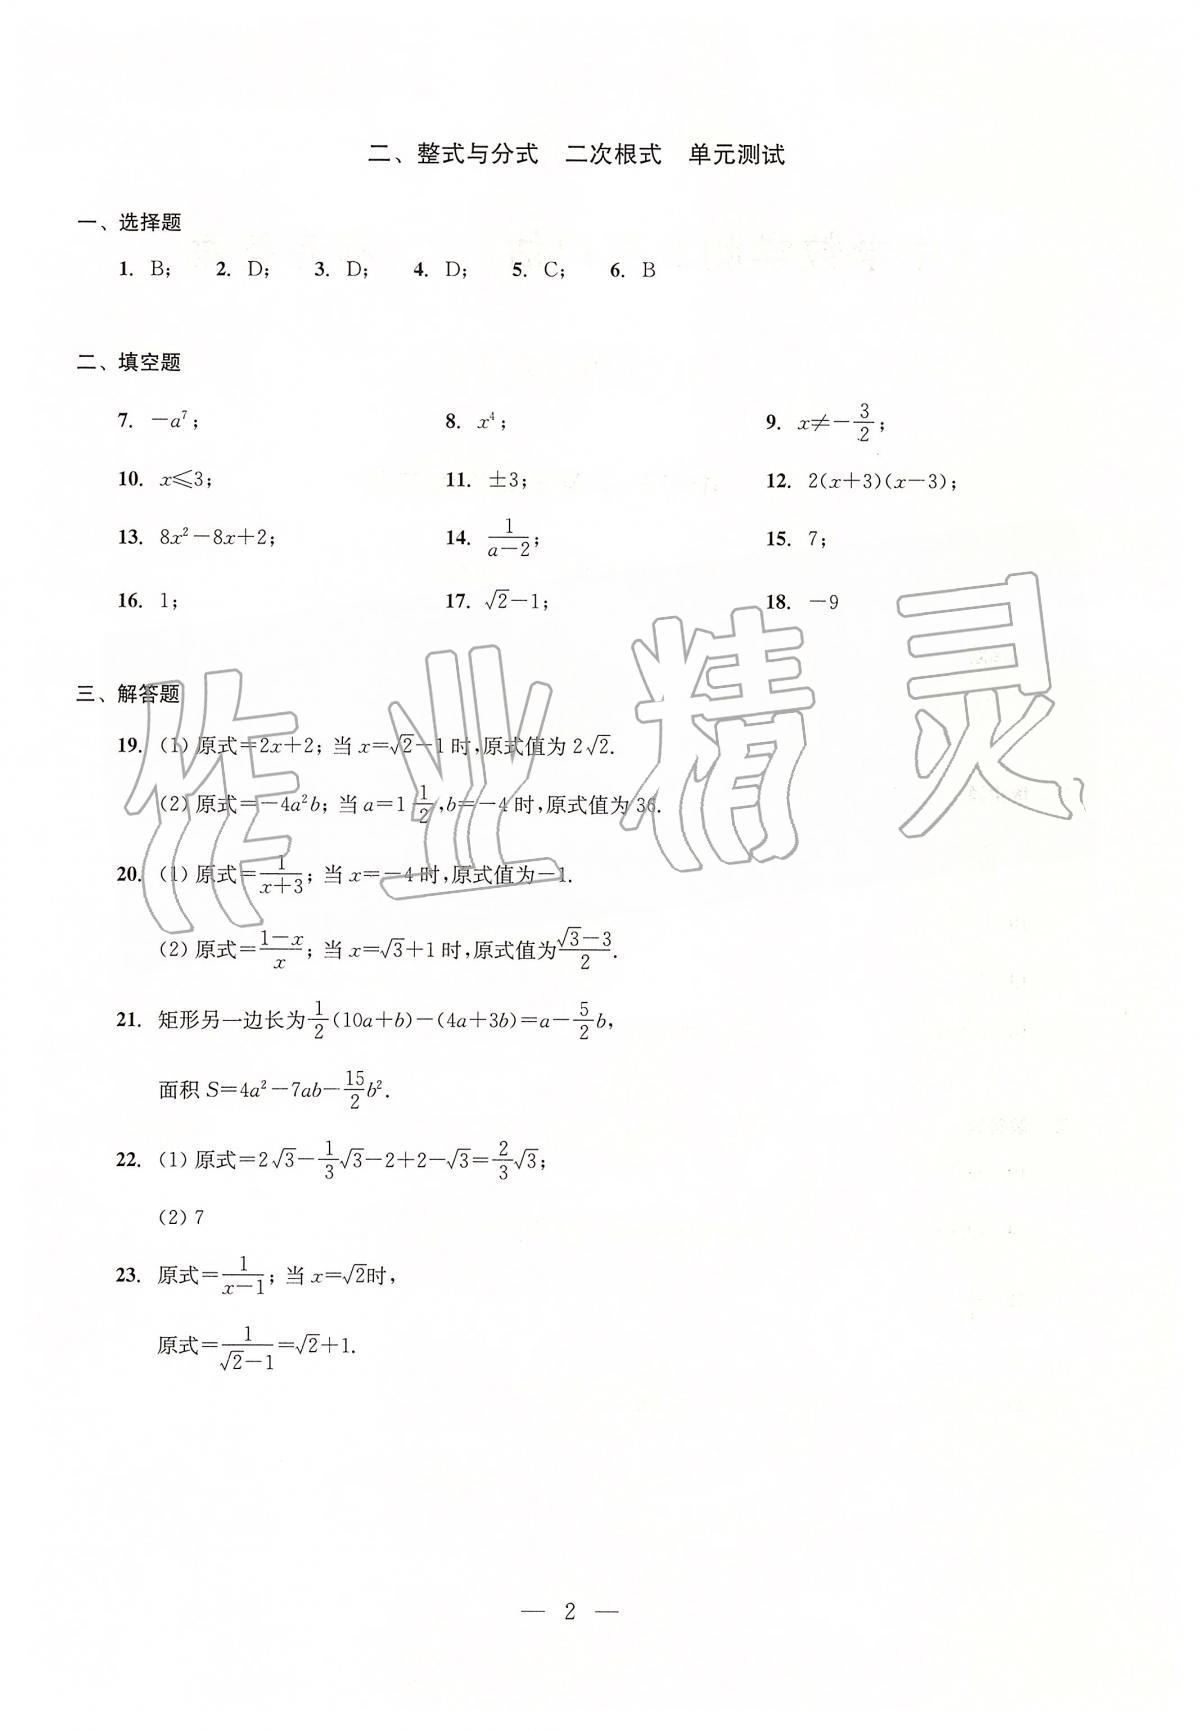 二、整式与分式 二次根式 单元测试
一、选择题
1. B; 2. D; 3. D; 4. D; 5. C; 6. B
二、填空题
7. －a⁷; 8. x⁴; 9. x≠－3/2;
10. x⩽3; 11. ±3; 12. 2(x＋3)(x－3);
13. 8x²－8x＋2; 14. 1/(a－2); 15. 7;
16. 1; 17. √2－1; 18. －9
三、解答题
19. (1) 原式＝2x＋2; 当 x＝√2－1 时,原式值为 2√2.
(2) 原式＝－4a²b; 当 a＝1 1/2,b＝－4 时,原式值为 36.
20. (1) 原式＝1/(x＋3); 当 x＝－4 时,原式值为－1.
(2) 原式＝(1－x)/x; 当 x＝√3＋1 时,原式值为(√3－3)/2.
21. 矩形另一边长为1/2(10a＋b)－(4a＋3b)＝a－5/2b,
面积 S＝4a²－7ab－15/2b².
22. (1) 原式＝2√3－1/3√3－2＋2－√3＝2/3√3;
(2) 7
23. 原式＝1/(x－1); 当 x＝√2时,
原式＝1/(√2－1)＝√2＋1.
作业精灵
— 2 —